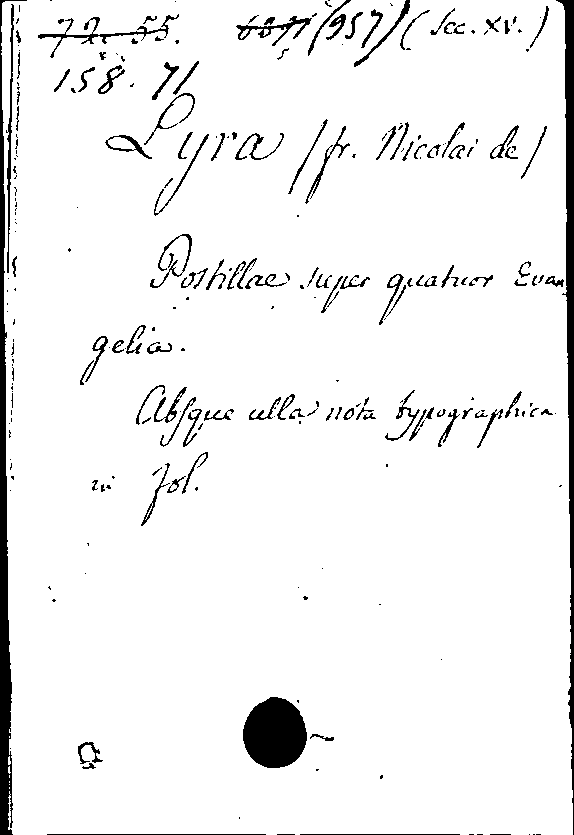 72. 55. (957) (Sec. XV.)
158. 71
Lyra /fr. Nicolai de/
Postillae super quatuor Evan-
gelia.
Absque ulla nota typographica
in Fol.